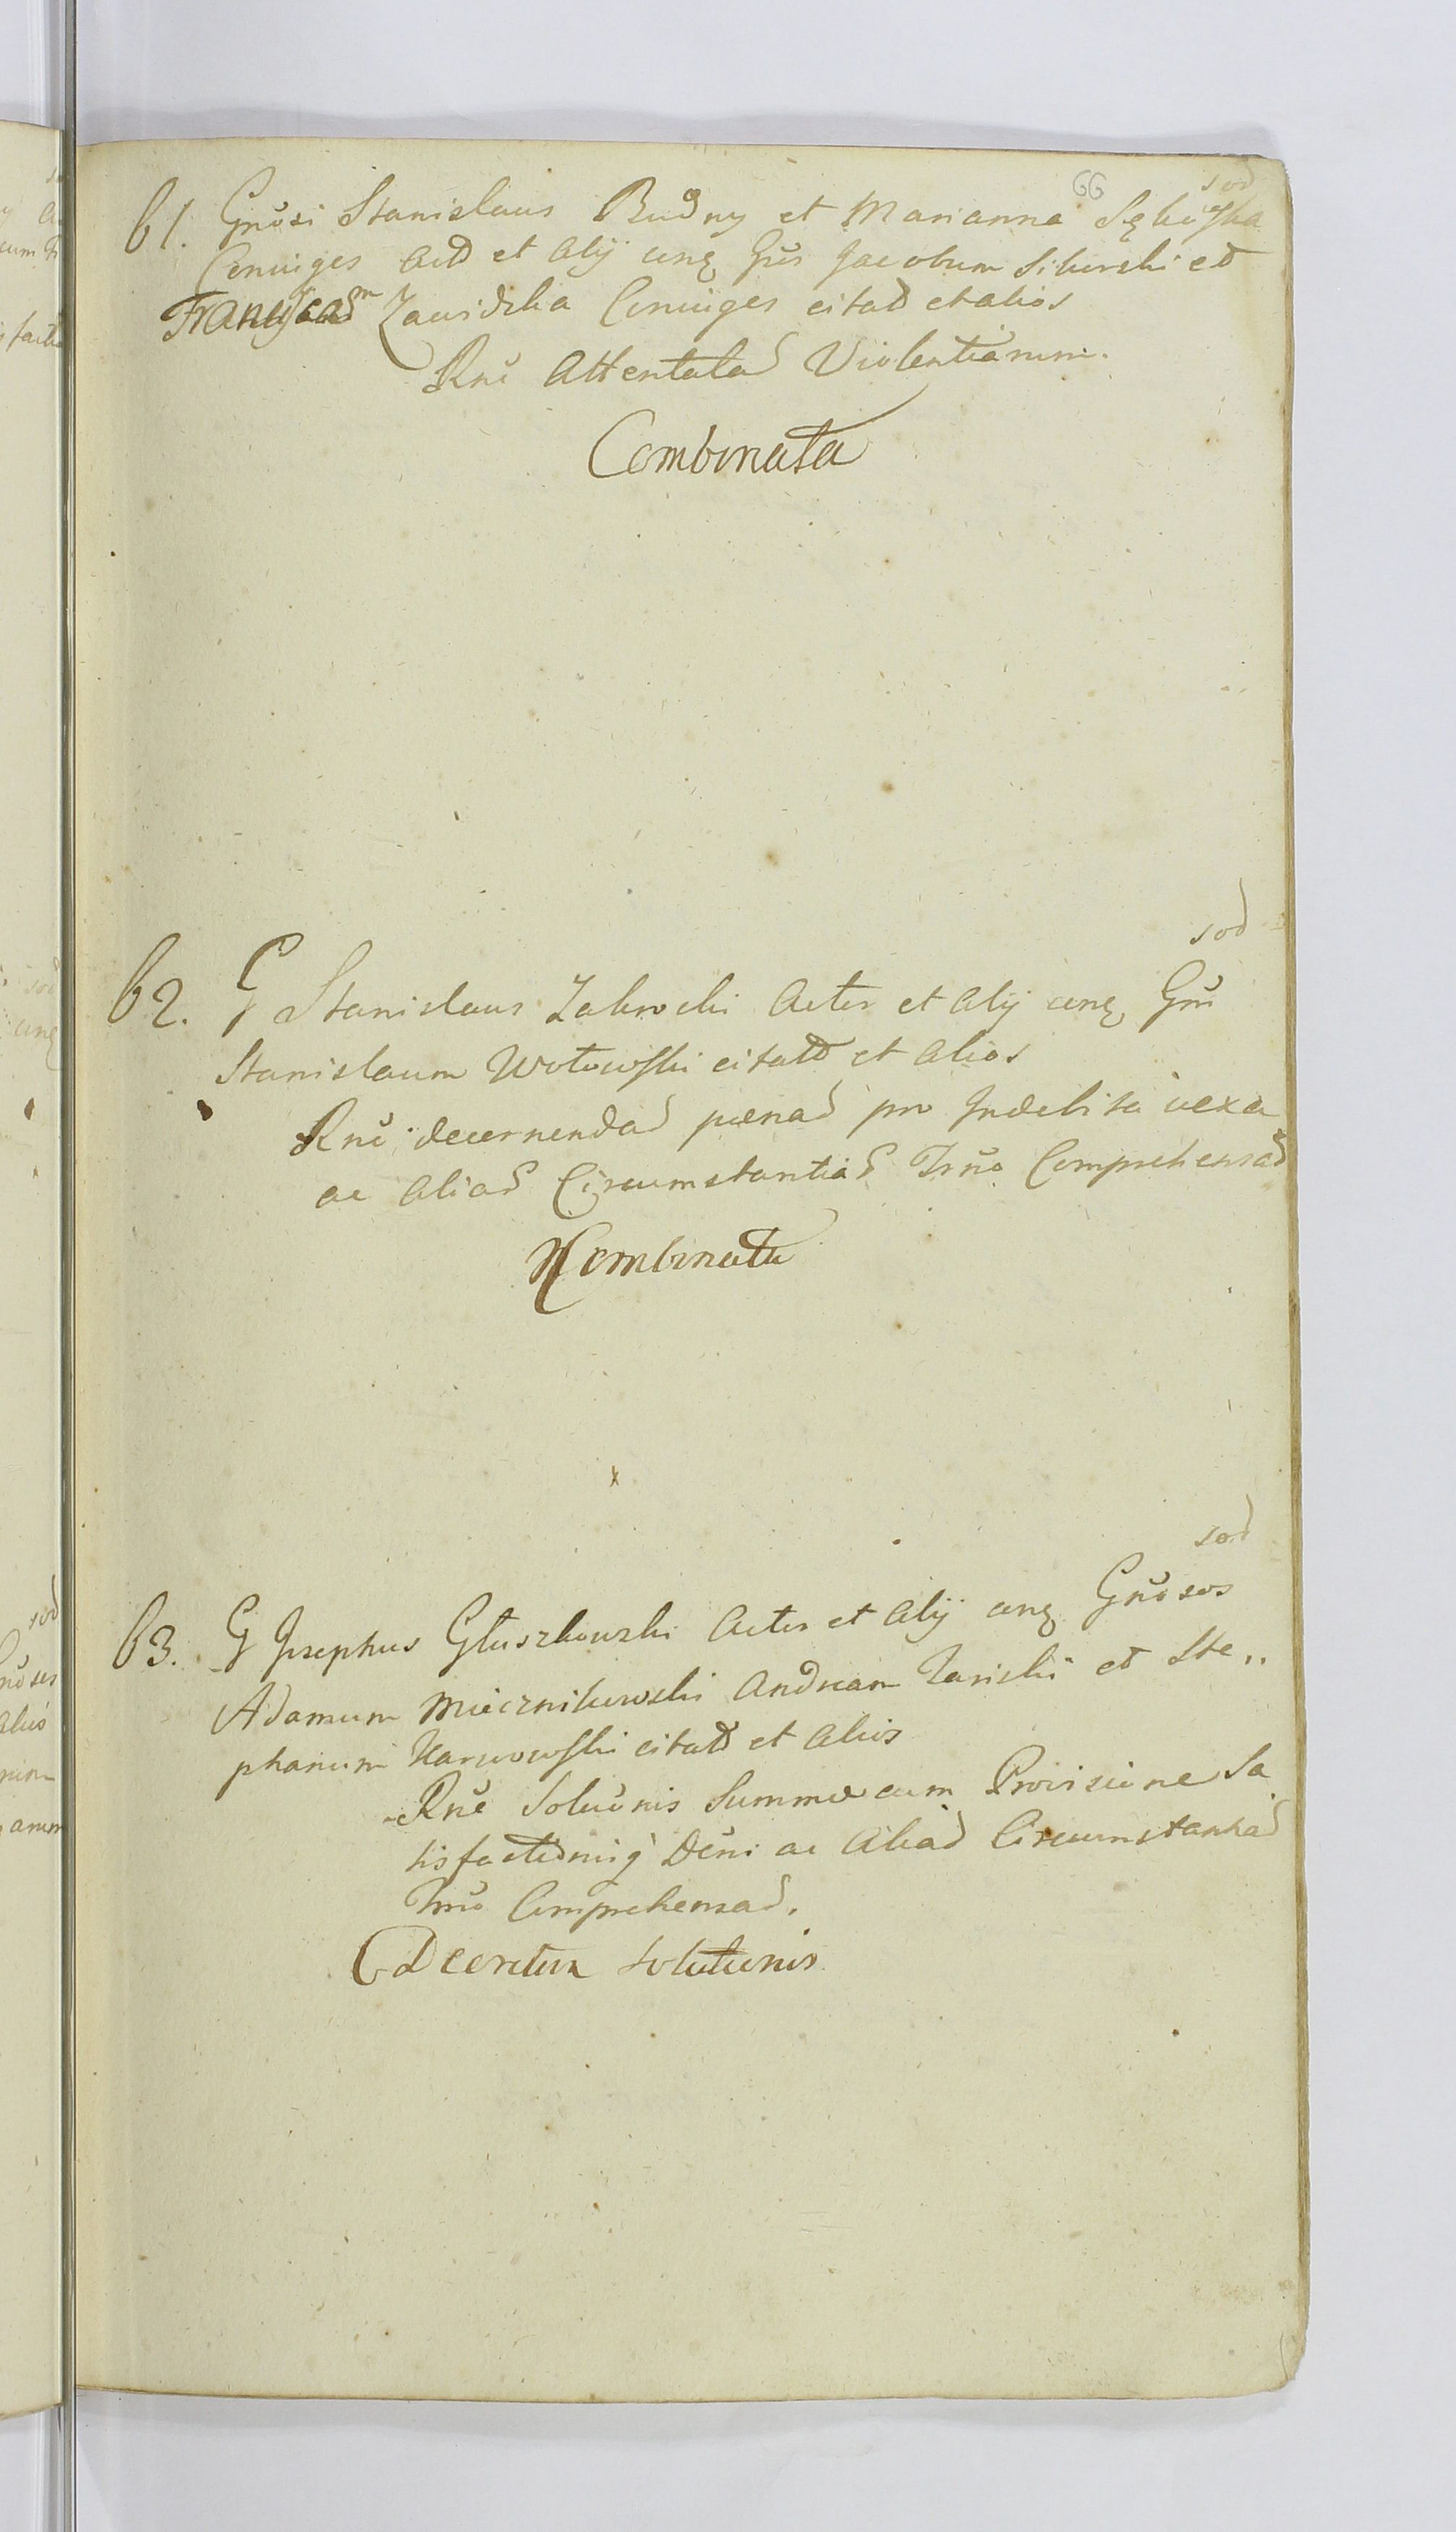 66
sod
61. Gnosi Stanislaus Budny et Marianna
Coniuges Actt et Alij cnq Gus Jacobum Sikorski et
Franciscam Zawidzka Coniuges citatt et alios
Rne Attentatad Violentiarum.
Combinata
sod
62. G Stanislaus Zakrocki Actor et Alij cnq Gm
Stanislaum Wolowski citatt et Alios
Rne decernendad poenad pro Indebita vexa
ac Aliad Circumstantiad Trmo Comprehensad
Combinata
sod
63. G Josephus Głuszkowski Actor et Alij cnq Gnosos
Adamum Miecznikowski Andream Zarıski et Ste,,
phanum Karwowski citatt et Alios
Rne Soluonis Summae cum Provisione Sa
tisfactionisq Dcni ac Aliad Circumstantiad
Trmo Comprehensad.
Decretum Solutionis